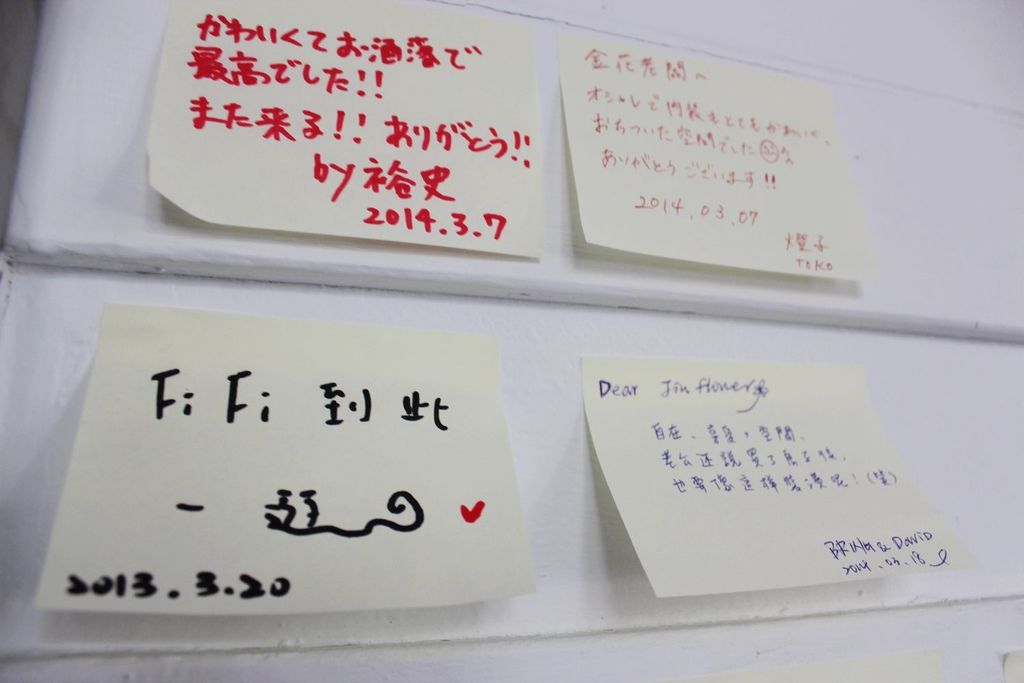 かわいくてお洒落で
最高でした!!
また来る!! ありがとう!!
by 裕史
2014.3.7
金花老闆~
オシャレで内装もとてもかわいく、
おちついた空間でした
ありがとうございます!!
2014.03.07
燈子
TOKO
Fi Fi 到此
一遊
2013.3.20
Dear Jin flower
自在、享受の空間,
老公还説買了房子後,
也要像這樣裝潢呢!(笑)
& David
2014.03.18